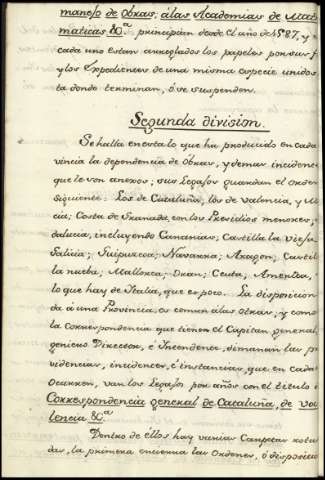 manejo de Obras, á las Academias de Mate
maticas &ª principian desde el año de 1587, y
cada uno estan arreglados los papeles por sus f
y los Expedientes de una misma especie unidos
ta donde terminan, ó se suspenden.
Segunda division.
Se halla en esta lo que ha producido en cada
vincia la dependencia de Obras, y demas incidenc
que le son anexos; sus Legajos guardan el Orden
siguiente: Los de Cataluña, los de Valencia, y M
cia; Costa de Granada, con los Presidios menores,
dalucia, incluyendo Canarias; Castilla la vieja
Galicia; Guipuzcoa; Navarra; Aragon; Castil
la nueba; Mallorca; Oran; Ceuta; America,
lo que hay de Italia, que es poco. La disposicion
da á una Provincia, es comun á las otras; y como
la Correspondencia que tienen el Capitan general,
geniero Director, é Intendente, dimanan las p
videncias, incidencias, é instancias, que en cada
Ocurren, van los Legajos por años con el titulo
Correspondencia general de Cataluña, de Va
lencia &ª
Dentro de éllos hay varias Carpetas rotula
das, la primera encierra las Ordenes, ó disposicio